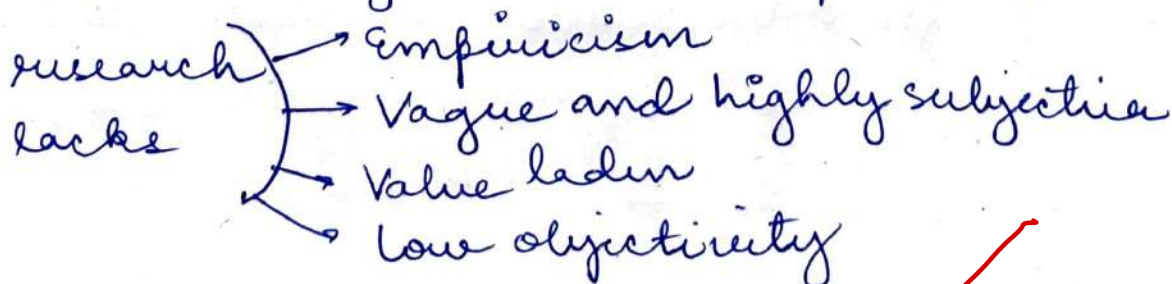 research
lacks
Empiricism
Vague and highly subjective
Value laden
Low objectivity